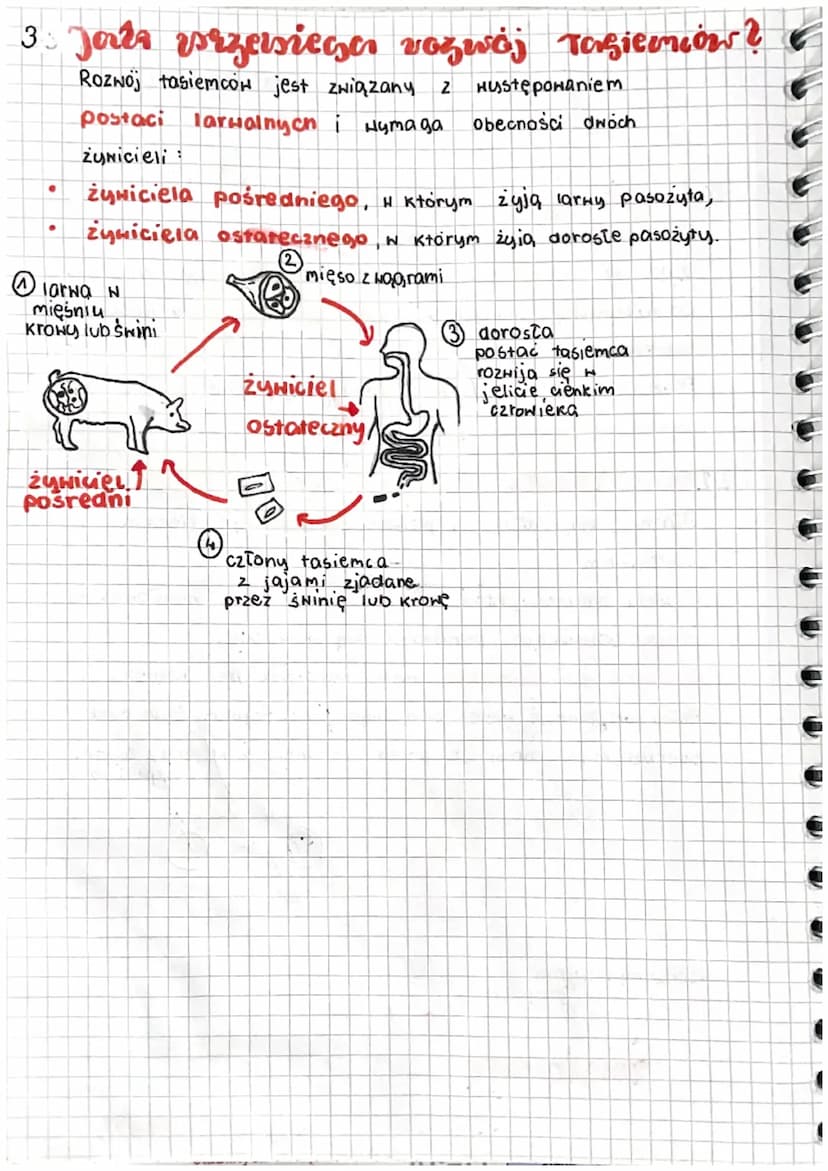 3. Jak przebiega rozwój tasiemców?
Rozwój tasiemców jest związany z występowaniem
postaci larwalnych i wymaga obecności dwóch
żywicieli:
• żywiciela pośredniego, w którym żyją larwy pasożyta,
• żywiciela ostatecznego, w którym żyją dorosłe pasożyty.
① larwa w
mięśniu
krowy lub świni
②
mięso z wągrami
③ dorosła
postać tasiemca
rozwija się w
jelicie cienkim
człowieka
żywiciel
ostateczny
żywiciel
pośredni
④
człony tasiemca
z jajami zjadane
przez świnię lub krowę